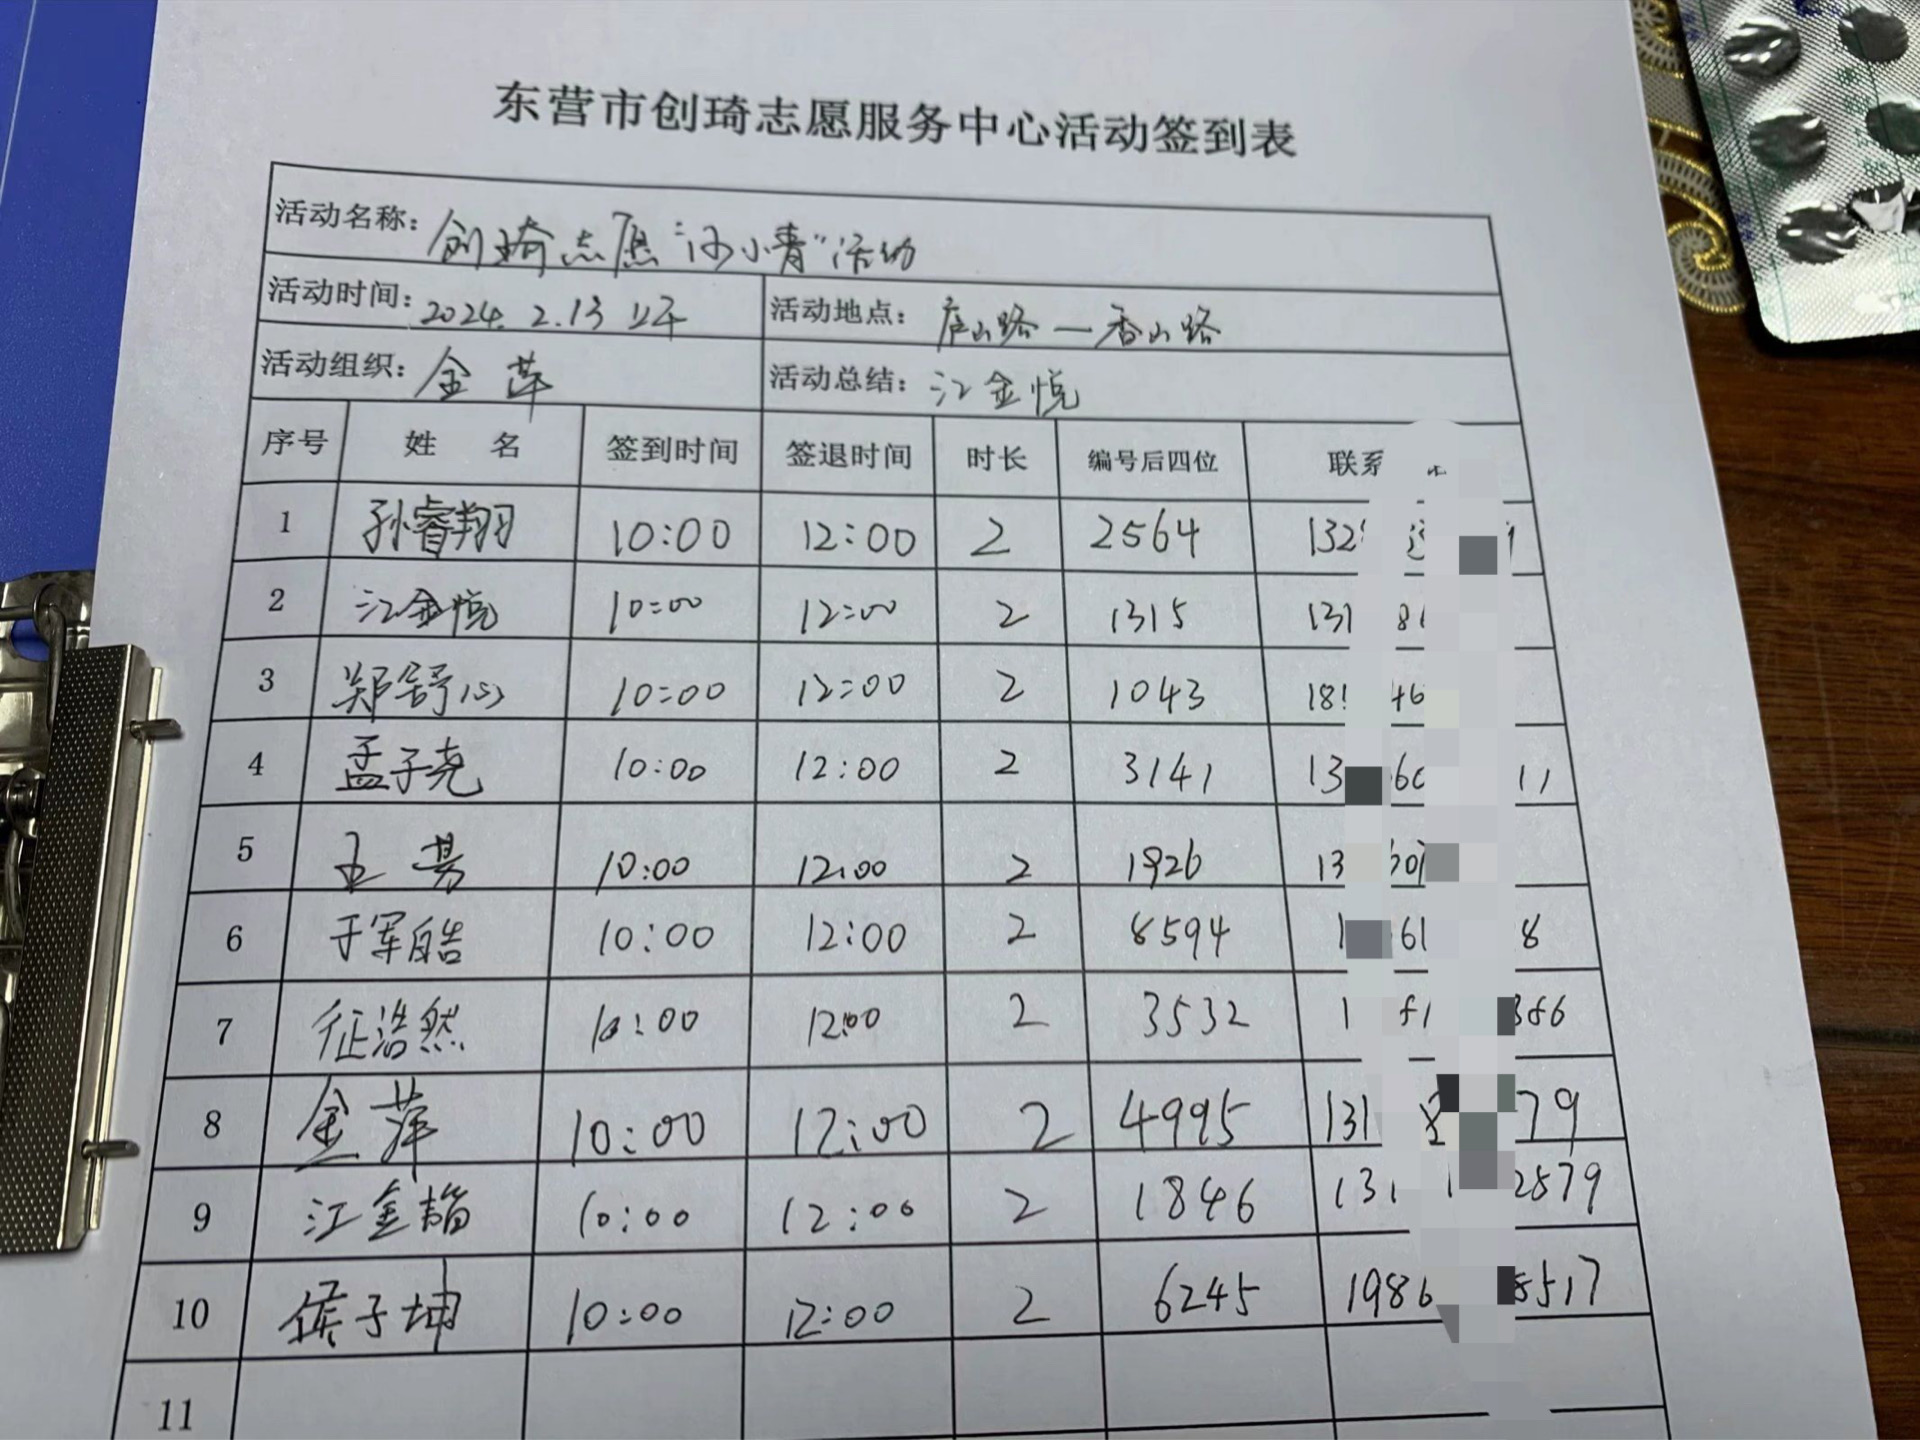 东营市创琦志愿服务中心活动签到表
活动名称：创琦志愿“河小青”活动
活动时间：2024.2.13 上午 活动地点：庐山路—香山路
活动组织：金萍 活动总结：江金悦
序号 姓 名 签到时间 签退时间 时长 编号后四位 联系
1 孙睿翔 10:00 12:00 2 2564 132
2 江金悦 10:00 12:00 2 1315 131
3 郑舒心 10:00 12:00 2 1043 18
4 孟子尧 10:00 12:00 2 3141 13 11
5 10:00 12:00 2 1926 13
6 于军皓 10:00 12:00 2 8594 1 61 8
7 征浩然 10:00 12:00 2 3532 1
8 金萍 10:00 12:00 2 4995 131 79
9 江金 10:00 12:00 2 1846 131 2579
10 侯子坤 10:00 12:00 2 6245 1986 8517
11